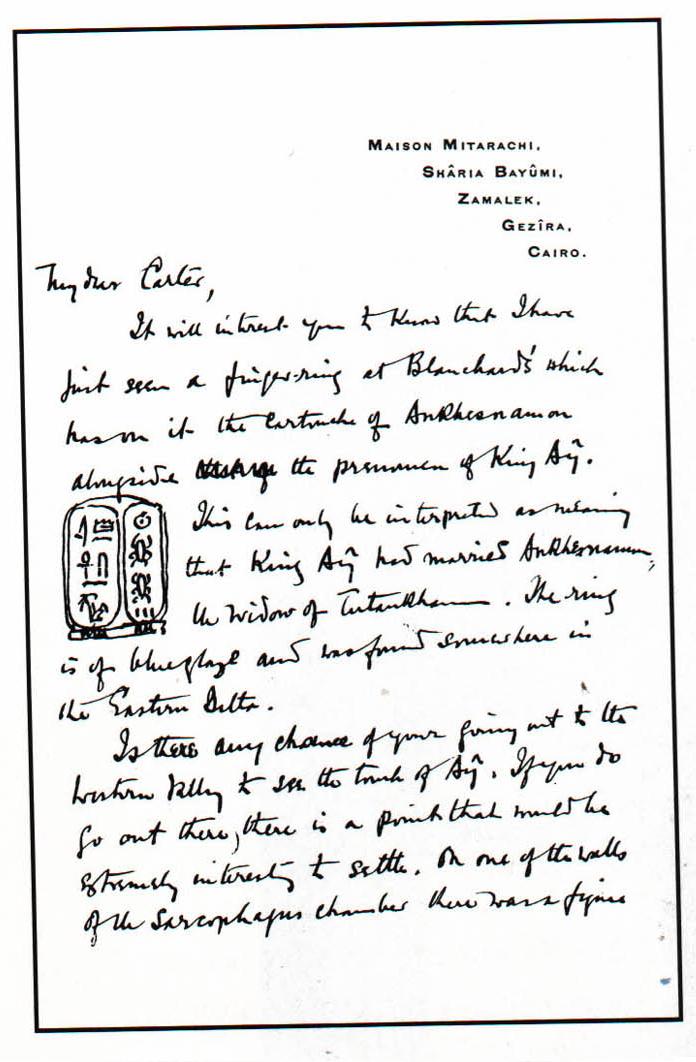 MAISON MITARACHI,
SHÂRIA BAYÛMI,
ZAMALEK,
GEZÎRA,
CAIRO.
My dear Carter,
It will interest you to know that I have
just seen a finger-ring at Blanchard's which
has on it the cartouche of Ankhesnamon
alongside the prenomen of King Aÿ.
This can only be interpreted as meaning
that King Aÿ had married Ankhesnamon,
the widow of Tutankhamon. The ring
is of blue glaze and was found somewhere in
the Eastern Delta.
Is there any chance of your going out to the
Western Valley to see the tomb of Aÿ. If you do
go out there, there is a point that would be
extremely interesting to settle. On one of the walls
of the sarcophagus chamber there was a figure